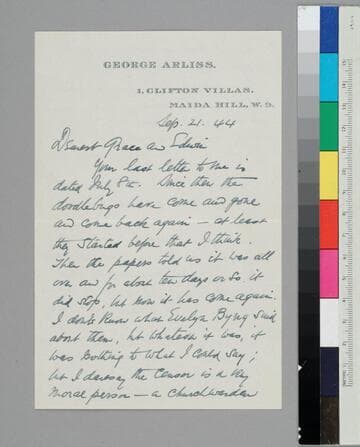 GEORGE ARLISS.
1, CLIFTON VILLAS,
MAIDA HILL, W.9.
Sep. 21. 44
Dearest Grace and Edwin
Your last letter to me is
dated July 8th. Since then the
doodlebugs have come and gone
and come back again – at least
they started before that I think.
Then the papers told us it was all
over and for about ten days or so, it
did stop, but now it has come again.
I don't know what Evelyn Byng said
about them, but whatever it was, it
was nothing to what I could say;
but I daresay the censor is a very
moral person – a churchwarden